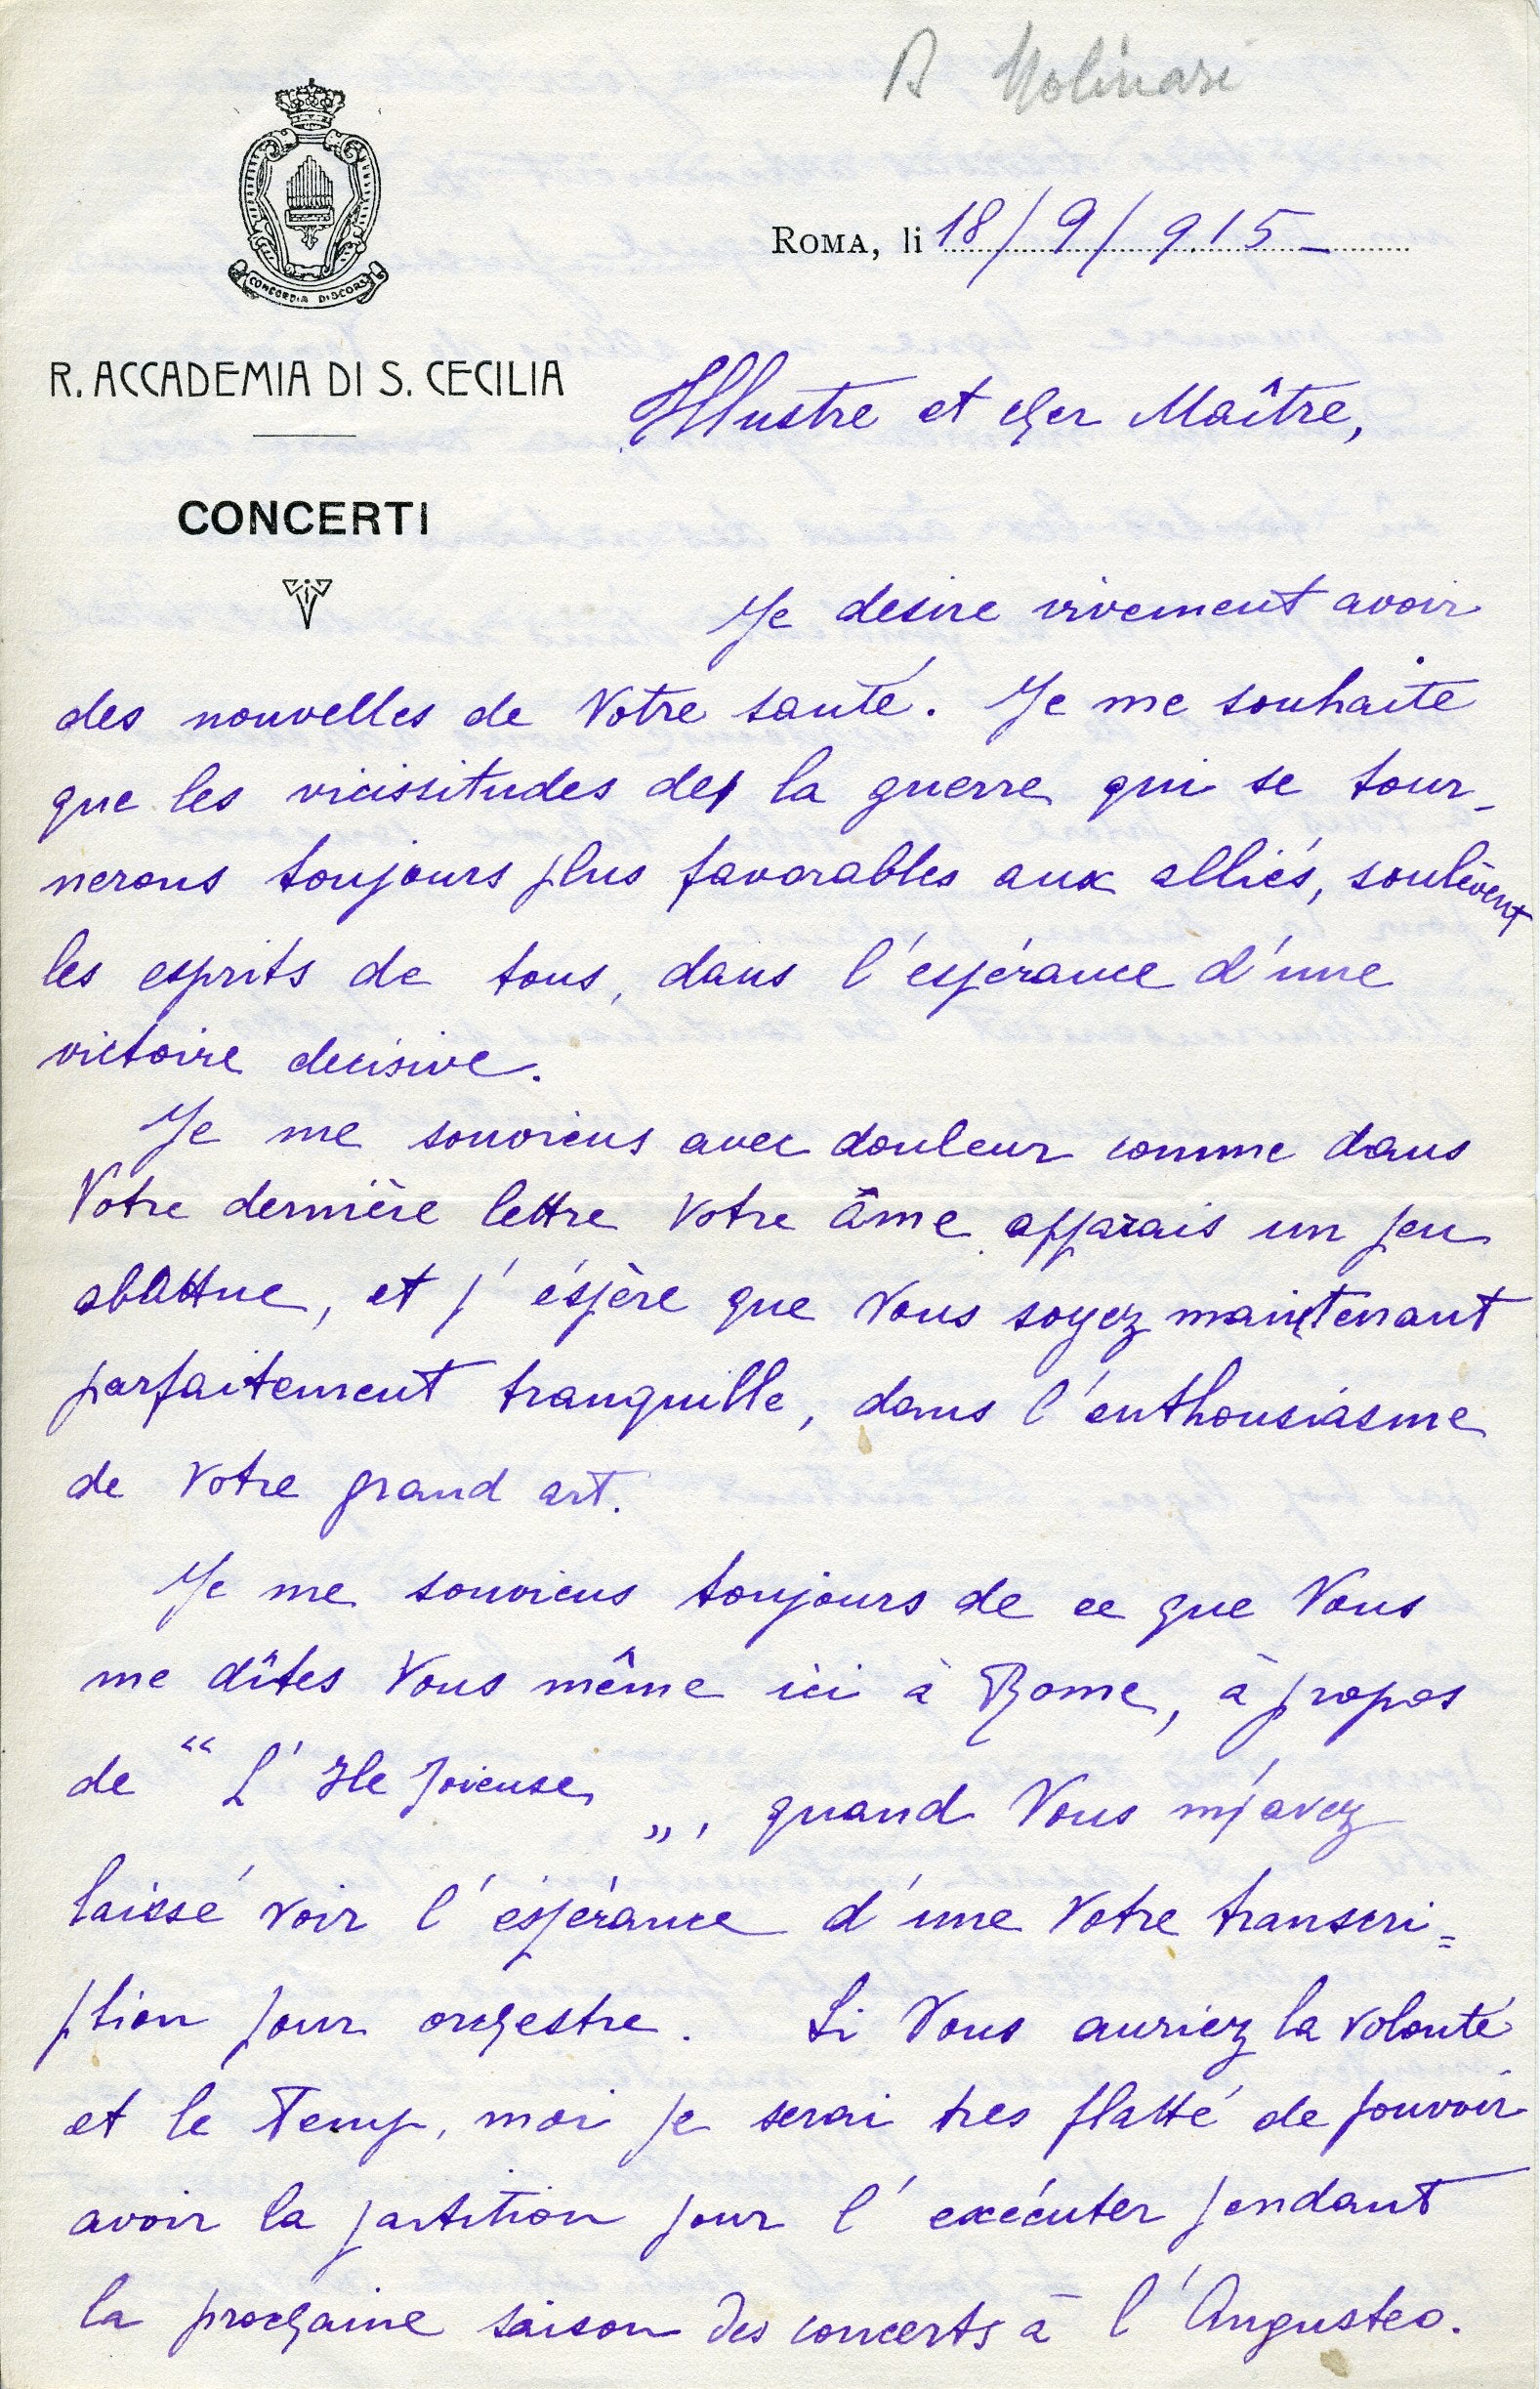 B Molinari
CONCORDIA DISCORS
ROMA, li 18/9/915_
R. ACCADEMIA DI S. CECILIA
CONCERTI
Illustre et cher Maître,
Je desire vivement avoir
des nouvelles de Votre santé. Je me souhaite
que les vicissitudes de la guerre qui se tour-
nerons toujours plus favorables aux alliés, soulèvent
les esprits de tous, dans l'espérance d'une
victoire decisive.
Je me souviens avec douleur comme dans
Votre dernière lettre Votre âme apparais un peu
abattue, et j'éspère que Vous soyez maintenant
parfaitement tranquille, dans l'enthousiasme
de Votre grand art.
Je me souviens toujours de ce que Vous
me dîtes Vous même ici à Rome, à propos
de “L'Ile Joieuse„, quand Vous m'avez
laissé voir l'éspérance d'une Votre transcri=
ption pour orchestre. Si Vous auriez la volonté
et le Temp, moi je serai tres flatté de pouvoir
avoir la partition pour l'exécuter pendant
la prochaine saison des concerts à l'Augusteo.